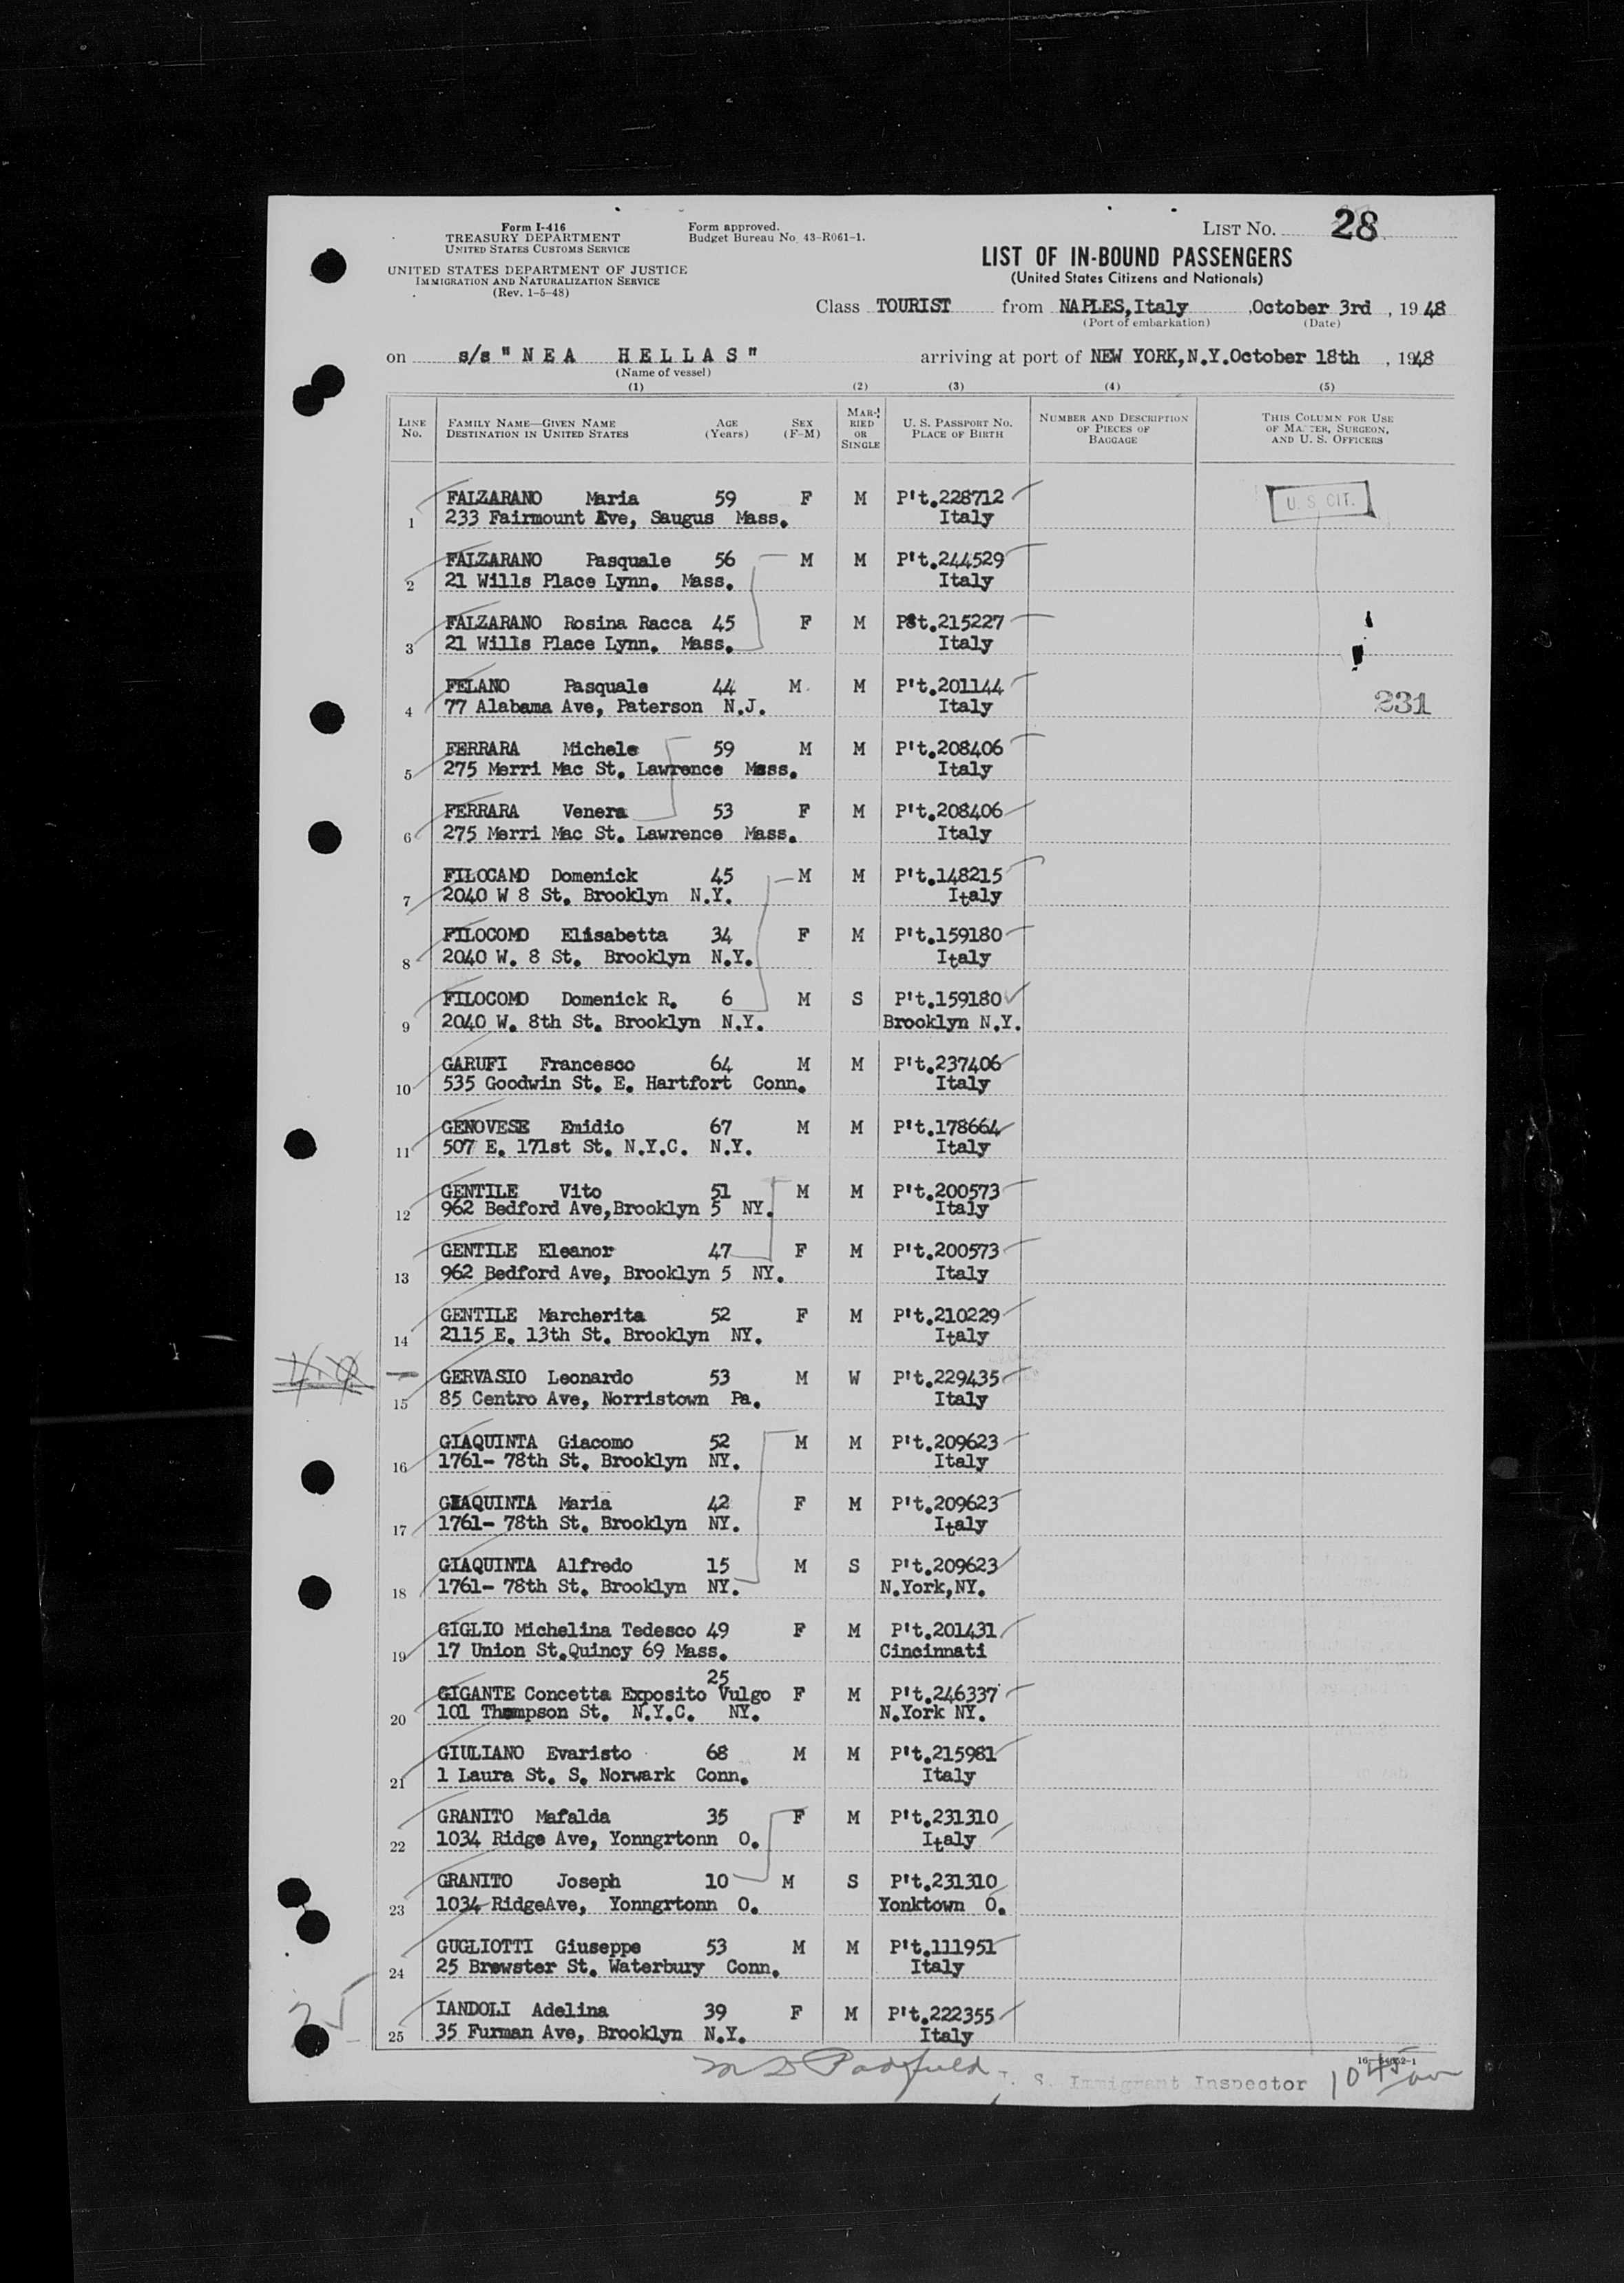 Form I-416
TREASURY DEPARTMENT
UNITED STATES CUSTOMS SERVICE
UNITED STATES DEPARTMENT OF JUSTICE
IMMIGRATION AND NATURALIZATION SERVICE
(Rev. 1-5-48)
Form approved.
Budget Bureau No. 43-R061-1.
LIST NO. 28
LIST OF IN-BOUND PASSENGERS
(United States Citizens and Nationals)
Class TOURIST from NAPLES,Italy ,October 3rd , 1948
(Port of embarkation) (Date)
on s/s " N E A H E L L A S " arriving at port of NEW YORK,N.Y.October 18th , 1948
(Name of vessel)
(1) (2) (3) (4) (5)
LINE No. FAMILY NAME—GIVEN NAME DESTINATION IN UNITED STATES AGE (Years) SEX (F-M) MARRIED OR SINGLE U. S. PASSPORT NO. PLACE OF BIRTH NUMBER AND DESCRIPTION OF PIECES OF BAGGAGE THIS COLUMN FOR USE OF MASTER, SURGEON, AND U. S. OFFICERS
FALZARANO Maria 59 F M P't.228712 U. S. CIT.
1 233 Fairmount Ave, Saugus Mass. Italy
FALZARANO Pasquale 56 M M P't.244529
2 21 Wills Place Lynn. Mass. Italy
FALZARANO Rosina Racca 45 F M P't.215227
3 21 Wills Place Lynn. Mass. Italy
FELANO Pasquale 44 M. M P't.201144 231
4 77 Alabama Ave, Paterson N.J. Italy
FERRARA Michele 59 M M P't.208406
5 275 Merri Mac St. Lawrence Mass. Italy
FERRARA Venera 53 F M P't.208406
6 275 Merri Mac St. Lawrence Mass. Italy
FILOCAMO Domenick 45 M M P't.148215
7 2040 W 8 St. Brooklyn N.Y. Italy
FILOCOMO Elisabetta 34 F M P't.159180
8 2040 W. 8 St. Brooklyn N.Y. Italy
FILOCOMO Domenick R. 6 M S P't.159180
9 2040 W. 8th St. Brooklyn N.Y. Brooklyn N.Y.
GARUFI Francesco 64 M M P't.237406
10 535 Goodwin St. E. Hartfort Conn. Italy
GENOVESE Emidio 67 M M P't.178664
11 507 E. 171st St. N.Y.C. N.Y. Italy
GENTILE Vito 51 M M P't.200573
12 962 Bedford Ave,Brooklyn 5 NY. Italy
GENTILE Eleanor 47 F M P't.200573
13 962 Bedford Ave, Brooklyn 5 NY. Italy
GENTILE Marcherita 52 F M P't.210229
14 2115 E. 13th St. Brooklyn NY. Italy
GERVASIO Leonardo 53 M W P't.229435
15 85 Centro Ave, Norristown Pa. Italy
GIAQUINTA Giacomo 52 M M P't.209623
16 1761- 78th St. Brooklyn NY. Italy
GIAQUINTA Maria 42 F M P't.209623
17 1761- 78th St. Brooklyn NY. Italy
GIAQUINTA Alfredo 15 M S P't.209623
18 1761- 78th St. Brooklyn NY. N.York,NY.
GIGLIO Michelina Tedesco 49 F M P't.201431
19 17 Union St.Quincy 69 Mass. Cincinnati
25
GIGANTE Concetta Exposito Vulgo F M P't.246337
20 101 Thompson St. N.Y.C. NY. N.York NY.
GIULIANO Evaristo 68 M M P't.215981
21 1 Laura St. S. Norwark Conn. Italy
GRANITO Mafalda 35 F M P't.231310
22 1034 Ridge Ave, Yonngrtonn O. Italy
GRANITO Joseph 10 M S P't.231310
23 1034 RidgeAve, Yonngrtonn O. Yonktown O.
GUGLIOTTI Giuseppe 53 M M P't.111951
24 25 Brewster St. Waterbury Conn. Italy
25
IANDOLI Adelina 39 F M P't.222355
25 35 Furman Ave, Brooklyn N.Y. Italy
U. S. Immigrant Inspector